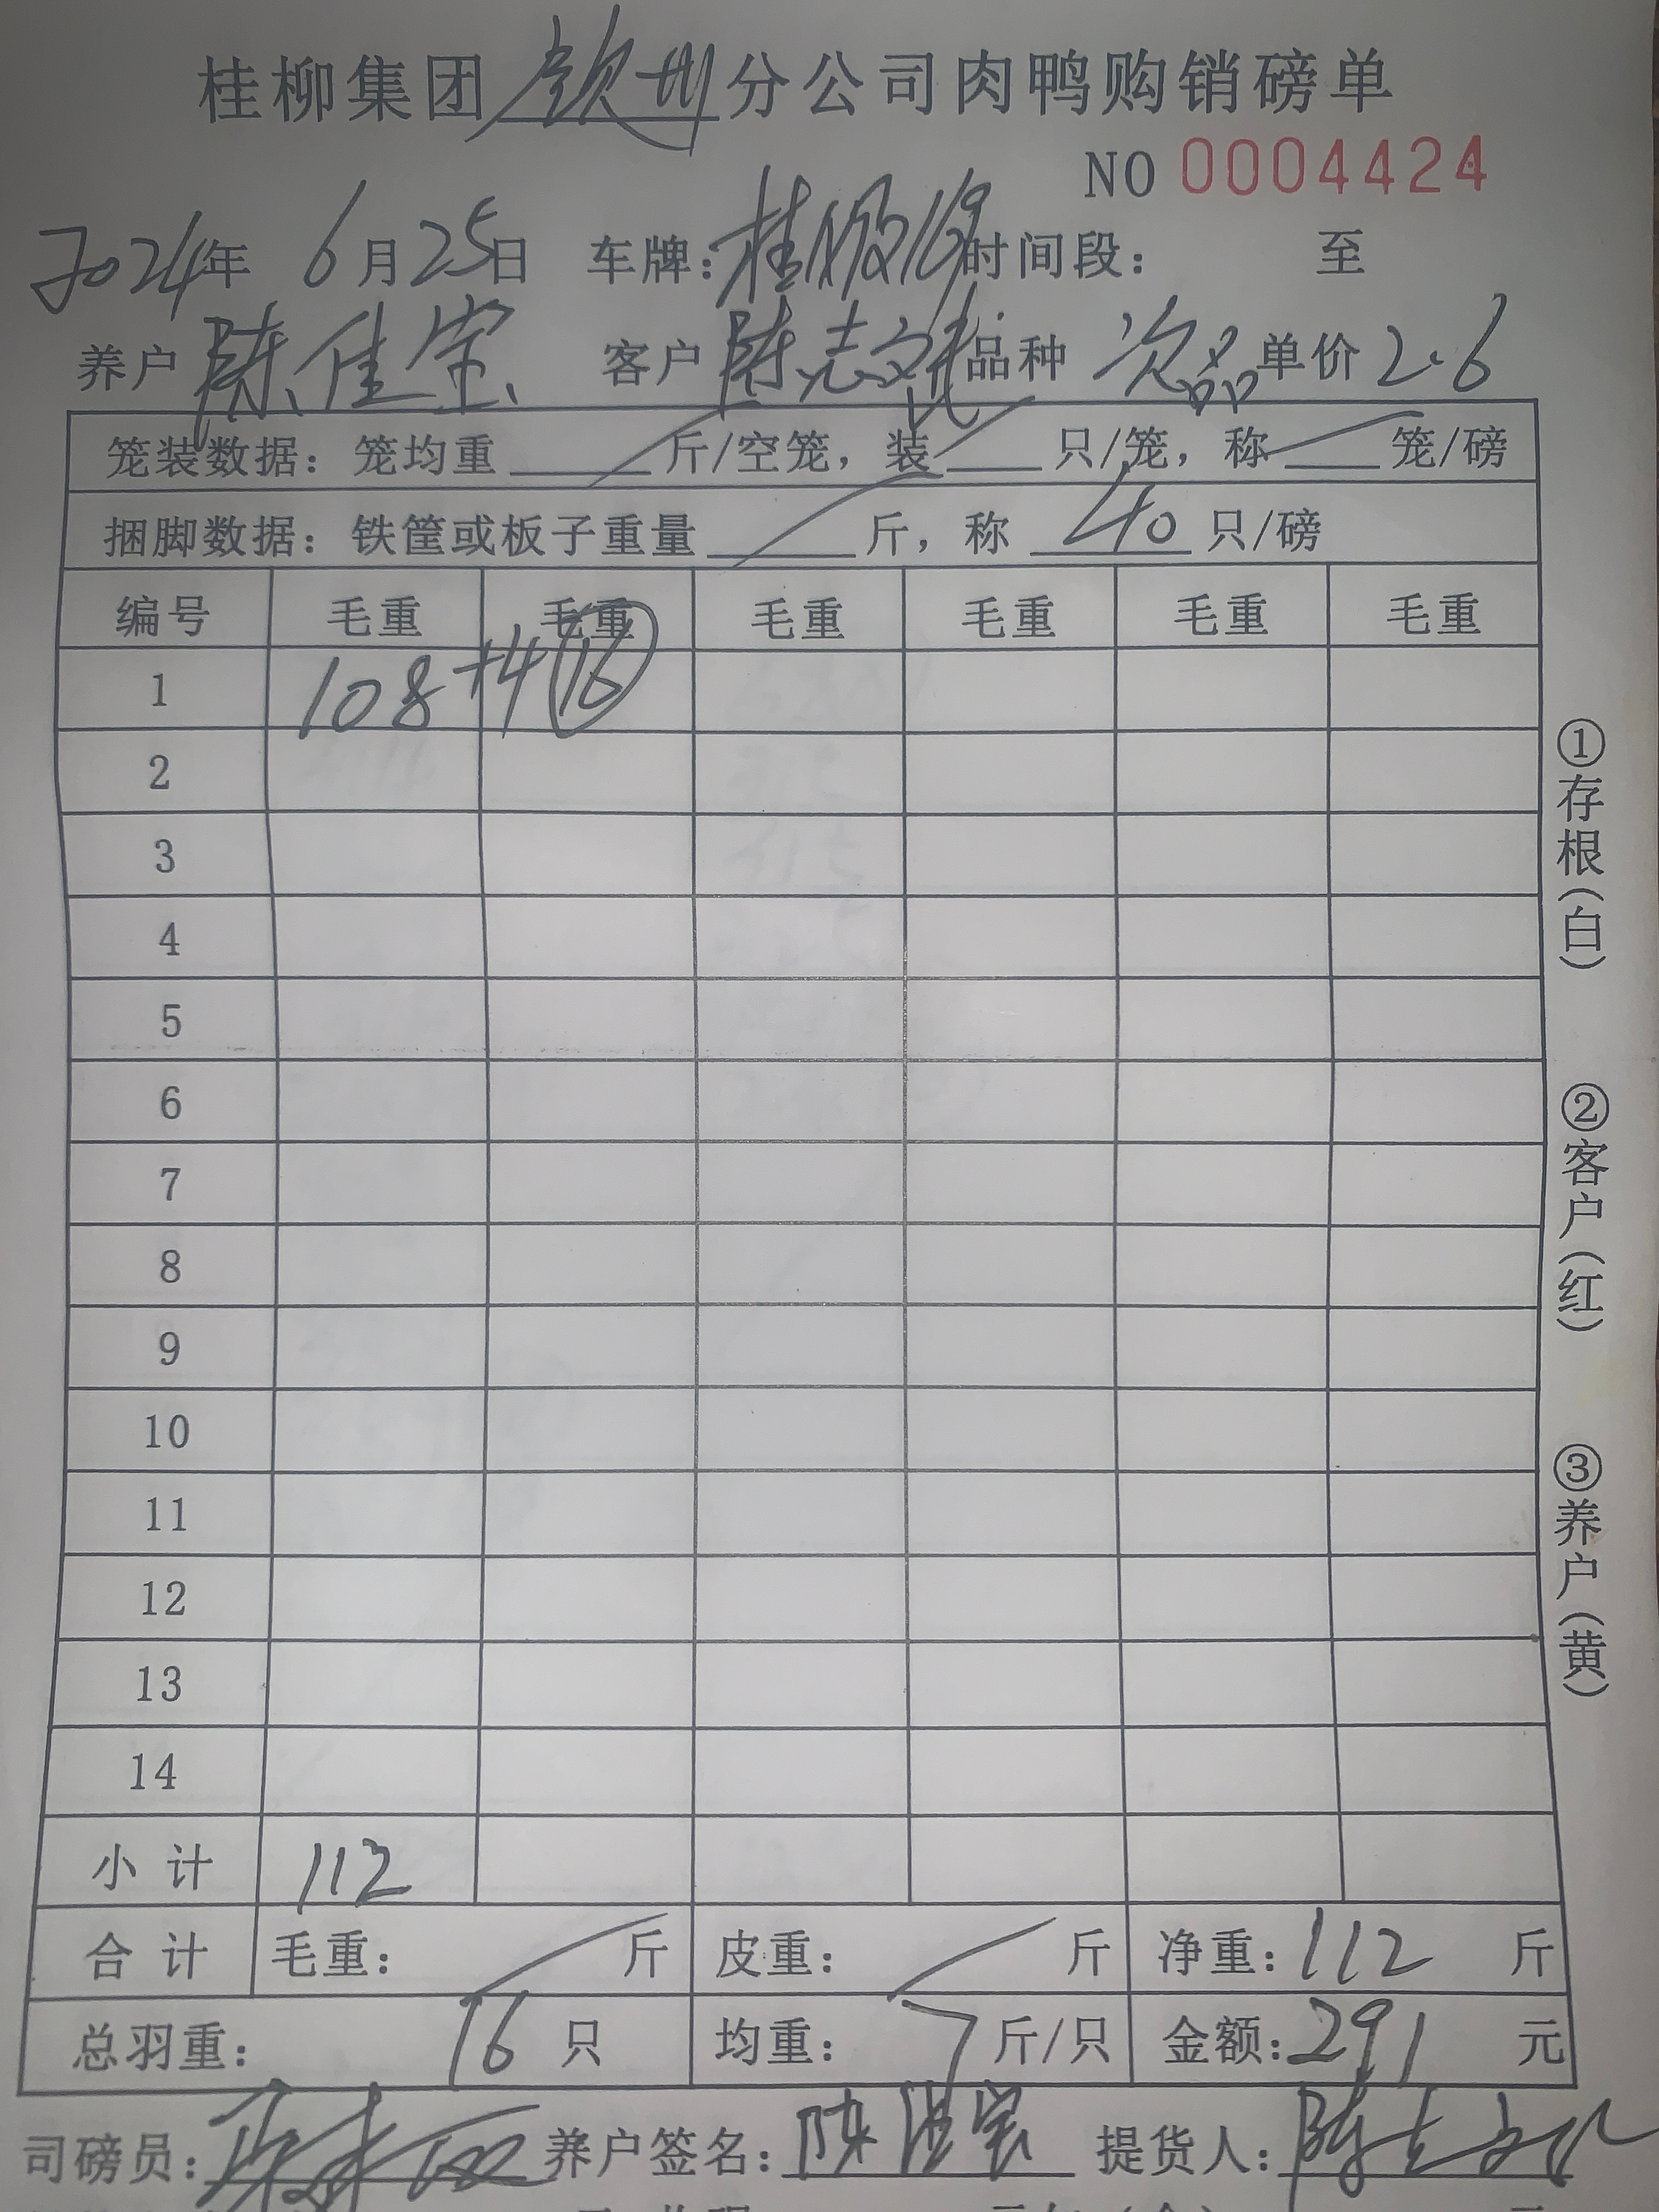 桂柳集团钦州分公司肉鸭购销磅单
NO 0004424
2024年 6月25日 车牌: 桂 时间段: 至
养户 陈佳宝 客户 陈志文 品种 次品 单价 2.6
笼装数据: 笼均重 斤/空笼, 装 只/笼, 称 笼/磅
捆脚数据: 铁筐或板子重量 斤, 称 40 只/磅
编号 毛重 毛重 毛重 毛重 毛重 毛重
1 108 +4 16
2
3
4
5
6
7
8
9
10
11
12
13
14
小计 112
合计 毛重: 斤 皮重: 斤 净重: 112 斤
总羽重: 16 只 均重: 7 斤/只 金额: 291 元
司磅员: 养户签名: 陈 提货人: 陈志文
①存根(白)
②客户(红)
③养户(黄)